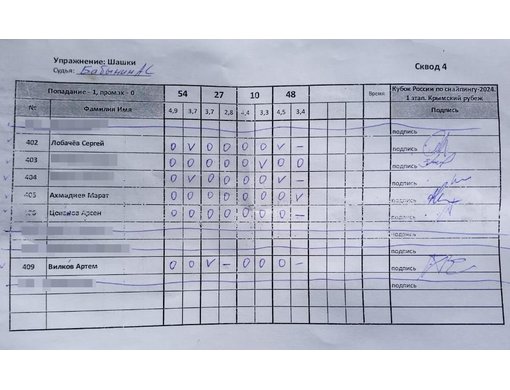 Упражнение: Шашки
Судья: Бабынин АС
Сквод 4
Попадание – 1, промах - 0 54 27 10 48 Время Кубок России по снайпингу-2024. 1 этап. Крымский рубеж
№ Фамилия Имя 4,9 3,7 3,7 2,8 4,4 3,3 4,5 3,4 Подпись
подпись
402 Лобачёв Сергей 0 V 0 0 0 0 V – подпись
403 0 0 0 0 0 V 0 0 подпись
404 0 V 0 0 0 0 V – подпись
405 Ахмадиев Марат 0 0 0 0 0 0 0 V подпись
406 Арсен 0 0 0 0 0 0 0 – подпись
подпись
подпись
409 Вилков Артем 0 0 V – 0 0 0 – подпись
подпись